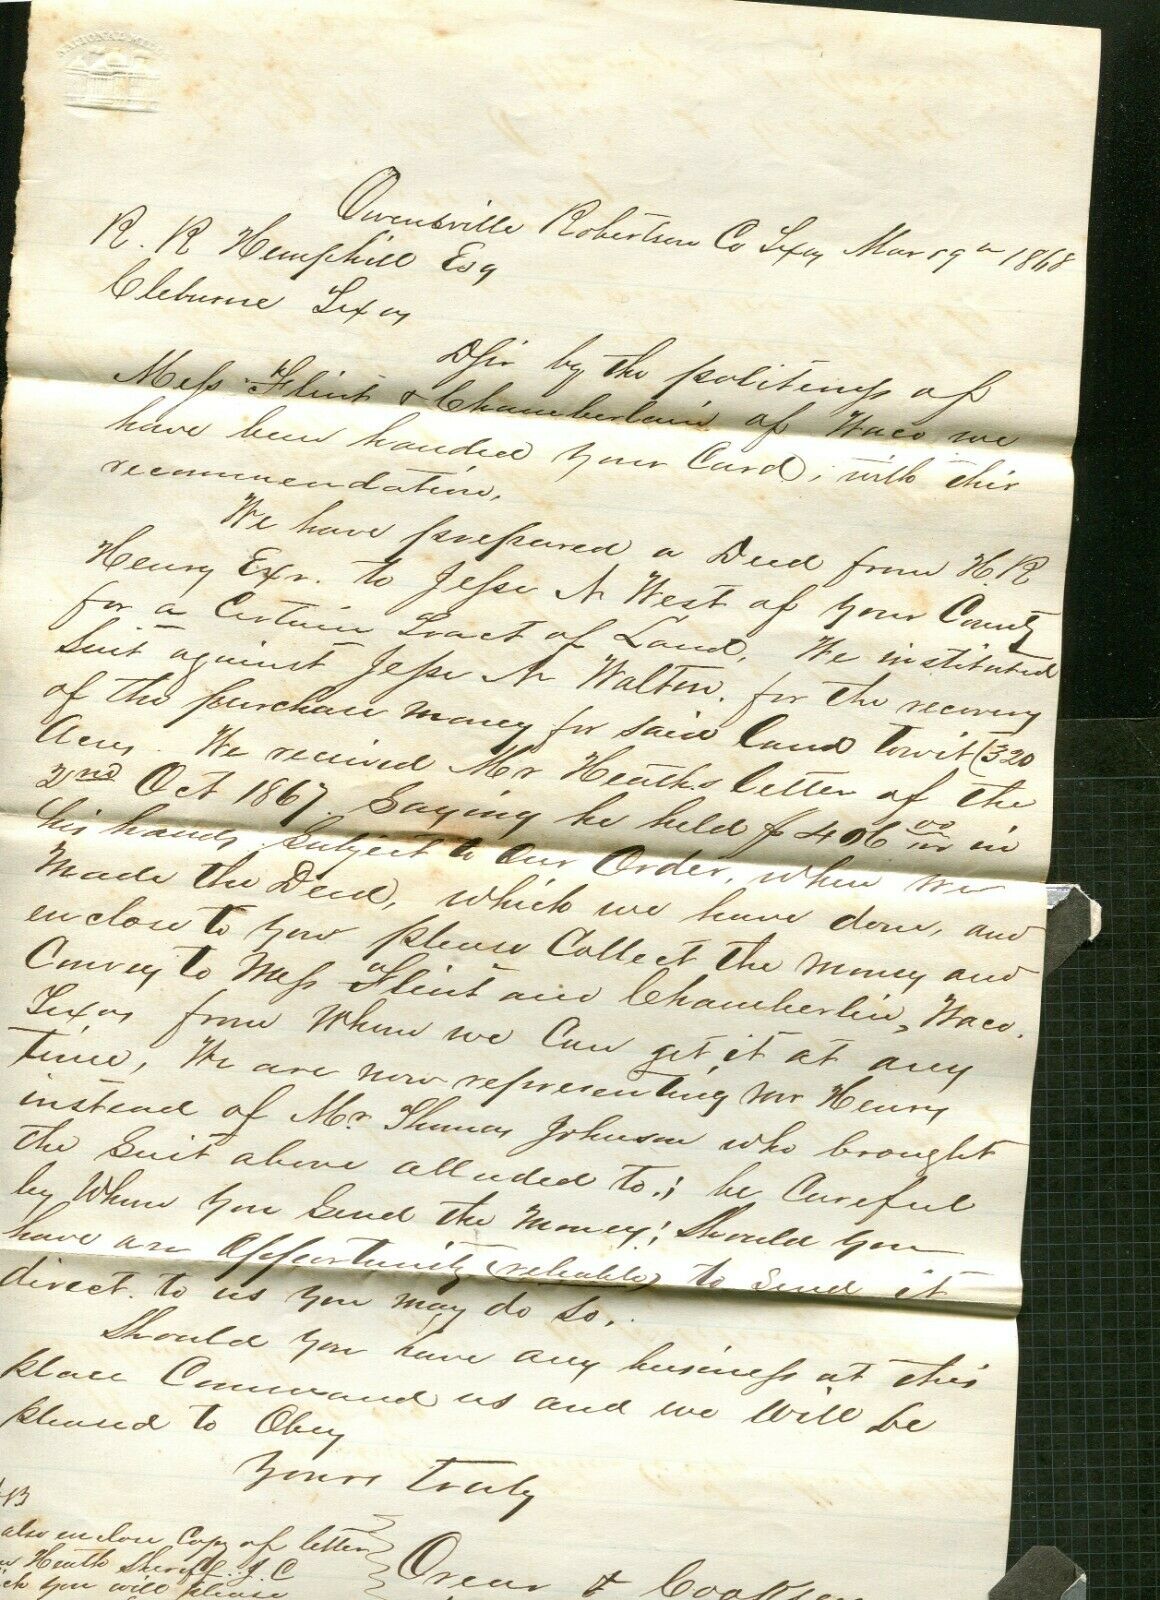 NATIONAL MILL
Owensville Robertson Co Texas Mar 19th 1868
R. R Hemphill Esq
Cleburne Texas
DSir by the politeness of
Mess Flint & Chamberlain of Waco we
have been handed your Card, with this
recommendation.
We have prepared a Deed from H. R
Henry Exr. to Jesse N West of your County
for a Certain Tract of Land, We instituted
Suit against Jesse N Walton. for the recovery
of the purchase money for said land towit (320
Acres. We received Mr Heaths letter of the
2nd Oct 1867 Saying he held $406 00/100 in
his hands Subject to Our Order, when we
made the Deed, which we have done, and
enclose to you please Collect the money and
Convey to Mess Flint and Chamberlin, Waco.
Texas from Whom we Can get it at any
time, We are now representing Mr Henry
instead of Mr. Thomas Johnson who brought
the Suit above alluded to.; be Careful
by Whom you Send the Money; Should you
have an Opportunity (reliable) to Send it
direct. to us you may do so.
Should you have any business at this
place Command us and we Will be
pleased to Obey
Yours truly
NB
also enclose Copy of letter
Heath Sheriff. J. C
you will please
Orear &